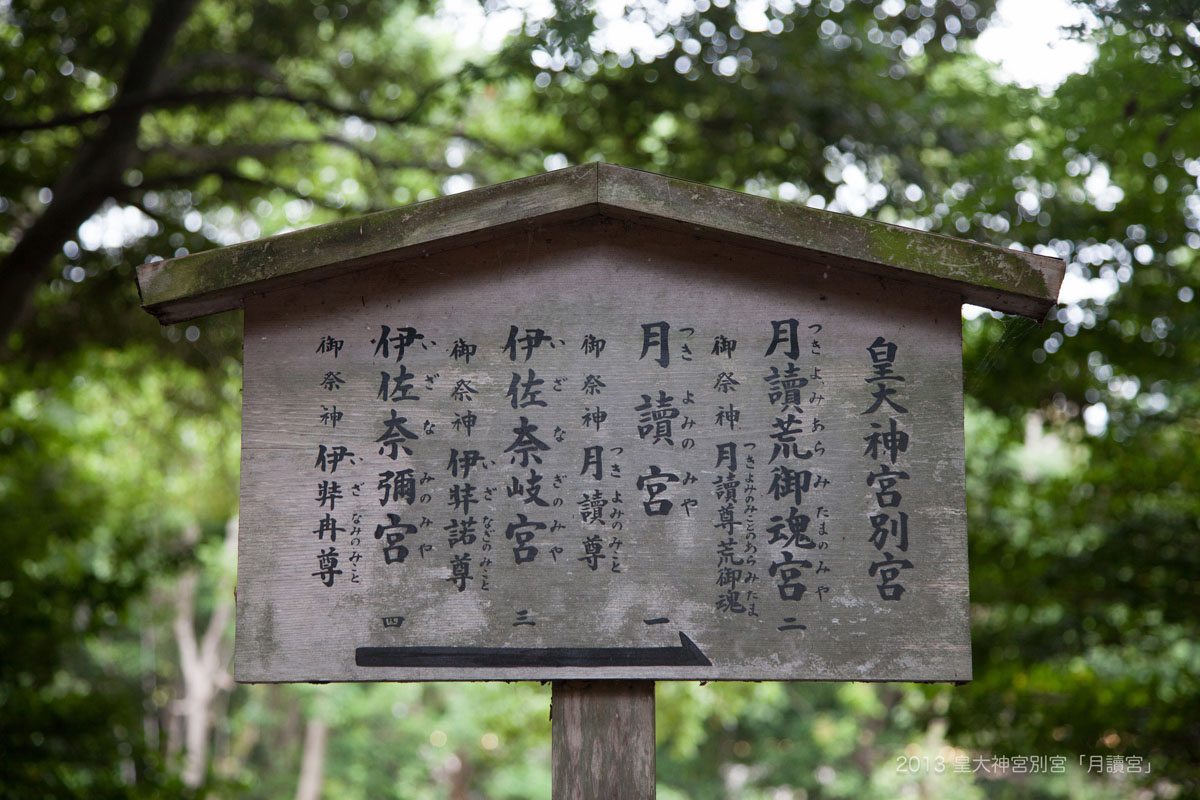 皇大神宮別宮
月讀荒御魂宮 二
つきよみあらみたまのみや
御祭神 月讀尊荒御魂
つきよみのみことのあらみたま
月讀宮 一
つきよみのみや
御祭神 月讀尊
つきよみのみこと
伊佐奈岐宮 三
いざなぎのみや
御祭神 伊弉諾尊
いざなぎのみこと
伊佐奈彌宮 四
いざなみのみや
御祭神 伊弉冉尊
いざなみのみこと
2013 皇大神宮別宮「月讀宮」